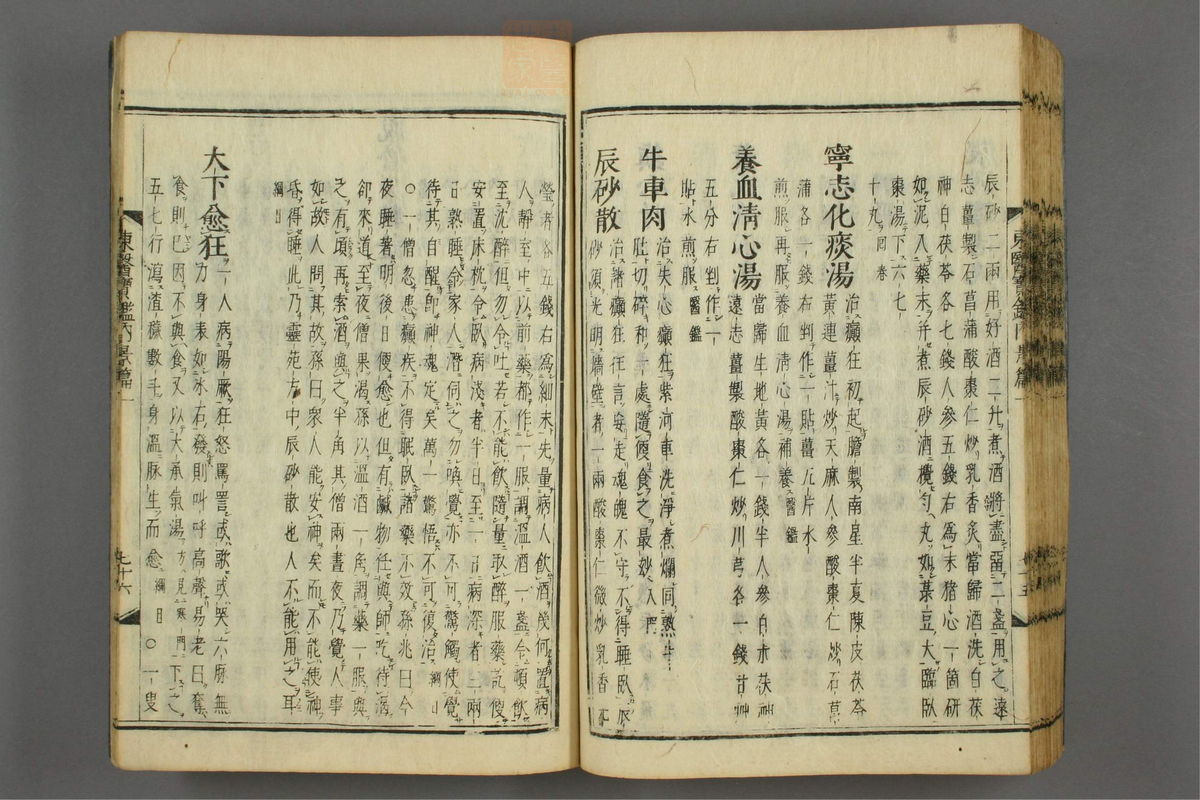 辰砂二兩用好酒二升煮酒將盡留二盞用之遠
志薑製石菖蒲酸棗仁炒乳香炙當歸酒洗白茯
神白茯苓各七錢人參五錢右爲末猪心一箇研
如泥入藥末并煮辰砂酒攪勻丸如菉豆大臨臥
棗湯下六七
十丸回春
寧志化痰湯 治癲狂初起膽製南星半夏陳皮茯苓
黃連薑汁炒天麻人參酸棗仁炒石菖
蒲各一錢右剉作一貼薑五片水
煎服再服養血淸心湯補養醫鑑
養血淸心湯 當歸生地黃各一錢半人參白朮茯神
遠志薑製酸棗仁炒川芎各一錢甘草
五分右剉作一
貼水煎服醫鑑
牛車肉 治失心癲狂紫河車洗淨煮爛同熟牛
肚切碎和一處隨便食之最妙入門
辰砂散 治諸癲狂狂言妄走魂魄不守不得睡臥辰
砂須光明墻壁者一兩酸棗仁微炒乳香
瑩者各五錢右爲細末先量病人飮酒幾何置病
人靜室中以前藥都作一服調溫酒一盞令頓飮
至沈醉但勿令吐若不能飮隨量取醉服藥訖便
安置床枕令臥病淺者半日至一日病深者二兩
日熟睡令家人潛伺之勿喚覺亦不可驚觸使覺
待其自醒卽神魂定矣萬一驚悟不可復治綱目
○一僧忽患癲疾不得眠臥諸藥不效孫兆曰今
夜睡著明後日便愈也但有鹹物任與師吃待渴
却來道至夜僧果渴孫以溫酒一角調藥一服與
之有頃再索酒與之半角其僧兩晝夜乃覺人事
如故人問其故孫曰衆人能安神矣而不能使神
昏得睡此乃靈苑方中辰砂散也人不能用之耳
綱目
大下愈狂 一人病陽厥狂怒罵詈或歌或哭六脈無
力身表如氷石發則叫呼高聲易老曰奪
食則已因不與食又以大承氣湯方見寒門下之
五七行瀉渣穢數斗身溫脈生而愈綱目○一叟
東醫寶鑑內景篇一
七十六